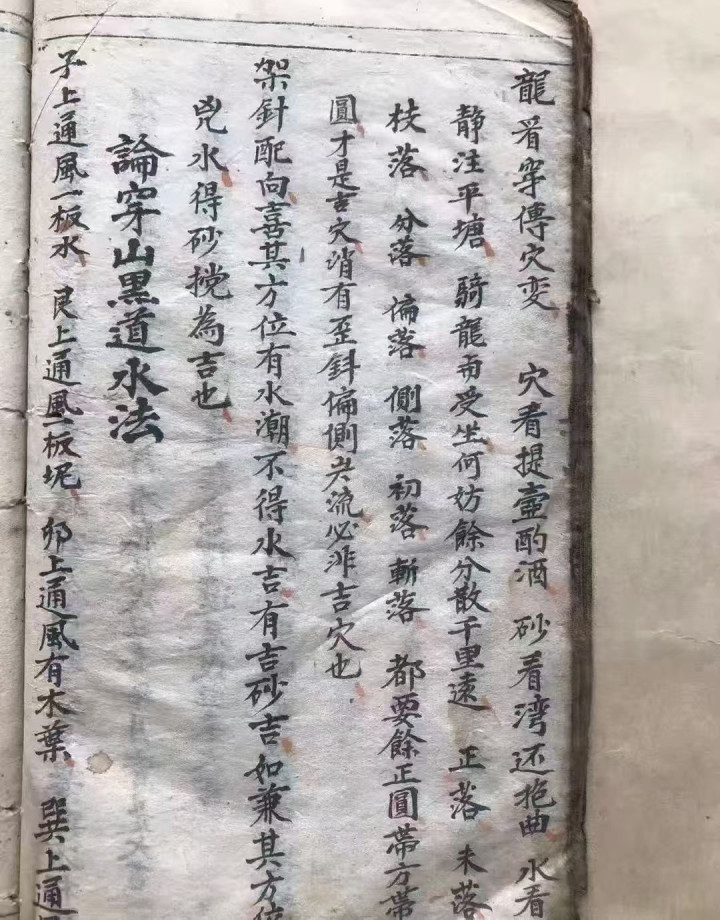 龍看穿傳穴变 穴看提壺酌酒 砂看湾还抱曲 水看
静注平塘 騎龍而受坐何妨餘分散千里遠 正落 未落
枝落 分落 偏落 側落 初落 斬落 都要餘正圓帶方帶
圓才是吉穴消有歪斜偏側流必非吉穴也
架針配向喜其方位有水潮不得水吉有吉砂吉如兼其方位
兇水得砂挽為吉也
論穿山黑道水法
子上通風一板水 艮上通風一板坭 卯上通風有木葉 巽上通